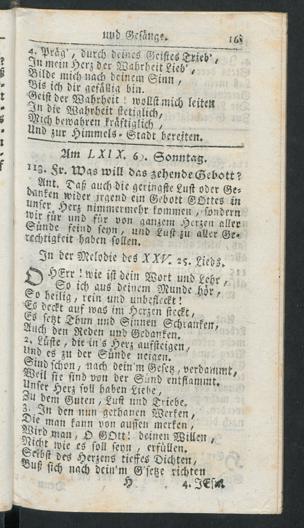 und Gesänge.
4. Präg', durch deines Geistes Trieb',
In mein Herz der Wahrheit Lieb',
Bilde mich nach deinem Sinn,
Bis ich dir gefällig bin.
Geist der Wahrheit! wollst mich leiten
In die Wahrheit stetiglich,
Mich bewahren kräftiglich,
Und zur Himmels-Stadt bereiten.
Am LXIX. 69. Sonntag.
113. Fr. Was will das zehende Gebott?
Ant. Daß auch die geringste Lust oder Ge-
danken wider irgend ein Gebott GOttes in
unser Herz nimmermehr kommen, sondern
wir für und für von ganzem Herzen aller
Sünde feind seyn, und Lust zu aller Ge-
rechtigkeit haben sollen.
In der Melodie des XXV. 25. Lieds.
O HErr! wie ist dein Wort und Lehr,
So ich aus deinem Munde hör,
So heilig, rein und unbefleckt!
Es deckt auf was im Herzen steckt,
Es setzt Thun und Sinnen Schranken,
Auch den Reden und Gedanken.
2. Lüste, die in's Herz aufsteigen,
und es zu der Sünde neigen.
Sind schon, nach dein'm Gesetz, verdammt,
Weil sie sind von der Sünd entstammt.
Unser Herz soll haben Liebe,
Zu dem Guten, Lust und Triebe.
3. In den nun gethanen Werken,
Die man kann von aussen merken,
Wird man, O GOtt! deinen Willen,
Nicht wie es soll seyn, erfüllen.
Selbst des Herzens tieffes Dichten,
Muß sich nach dein'm G'setze richten
H 4. JEsu